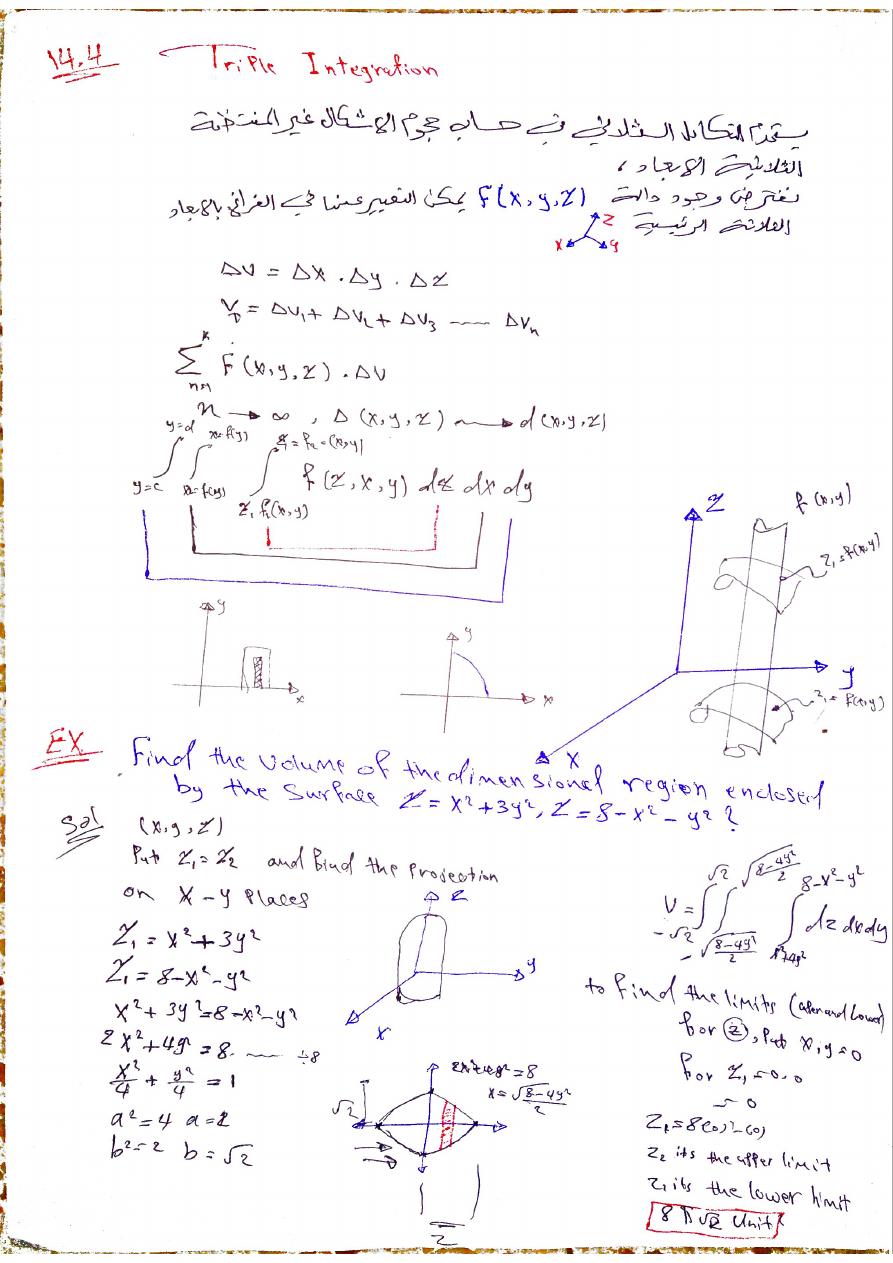 14.4 Triple Integration
يستخدم التكامل الثلاثي في حساب حجوم الاشكال غير المنتظمة
الثلاثية الابعاد ،
نفترض وجود دالة F(x,y,z) يمكن التعبير عنها في الفراغ بالابعاد
الثلاثة الرئيسية
z
x y
ΔV = Δx . Δy . Δz
V = ΔV₁ + ΔV₂ + ΔV₃ ---- ΔVₙ
Σ F(x,y,z) . ΔV
n → ∞ , Δ(x,y,z) → d(x,y,z)
y=d x=f(y) z=f₂=(x,y)
∫ ∫ ∫ f(z,x,y) dz dx dy
y=c x=f(y) z₁ f₁(x,y)
z f(x,y)
z₁=f(x,y)
y
z₁=f(x,y)
x
y
x
y
x
EX Find the volume of the dimensional region enclosed
by the surface z=x²+3y², z=8-x²-y² ?
Sol (x,y,z)
Put z₁=z₂ and find the Projection
on x-y places
z₁ = x²+3y²
z₁ = 8-x²-y²
x²+3y²=8-x²-y²
2x²+4y²=8 ---- ÷8
x²/4 + y²/4 = 1
a²=4 a=2
b²=2 b=√2
z
y
x
2x²+4y²=8
x=√8-4y²/2
√2
2
√2 √8-4y²/2 8-x²-y²
V = ∫ ∫ ∫ dz dx dy
-√2 -√8-4y²/2
to find the limits
for z, Put x,y=0
for z₁=0.0
= 0
z₂ its the upper limit
z₁ its the lower limit
8π√2 Unit